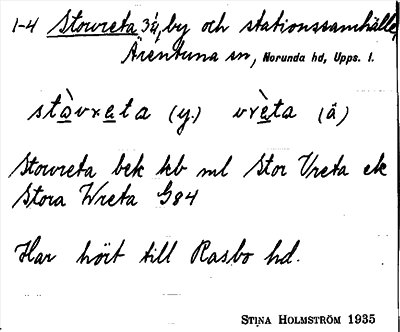 1-4 Storvreta 3/4, by och stationssamhälle,
Ärentuna sn, Norunda hd, Upps. l.
stàvreta (y.) vrèta (ä)
Storvreta bek hb ml Stor Vreta ek
Stora Wreta G84
Har hört till Rasbo hd.
STINA HOLMSTRÖM 1935